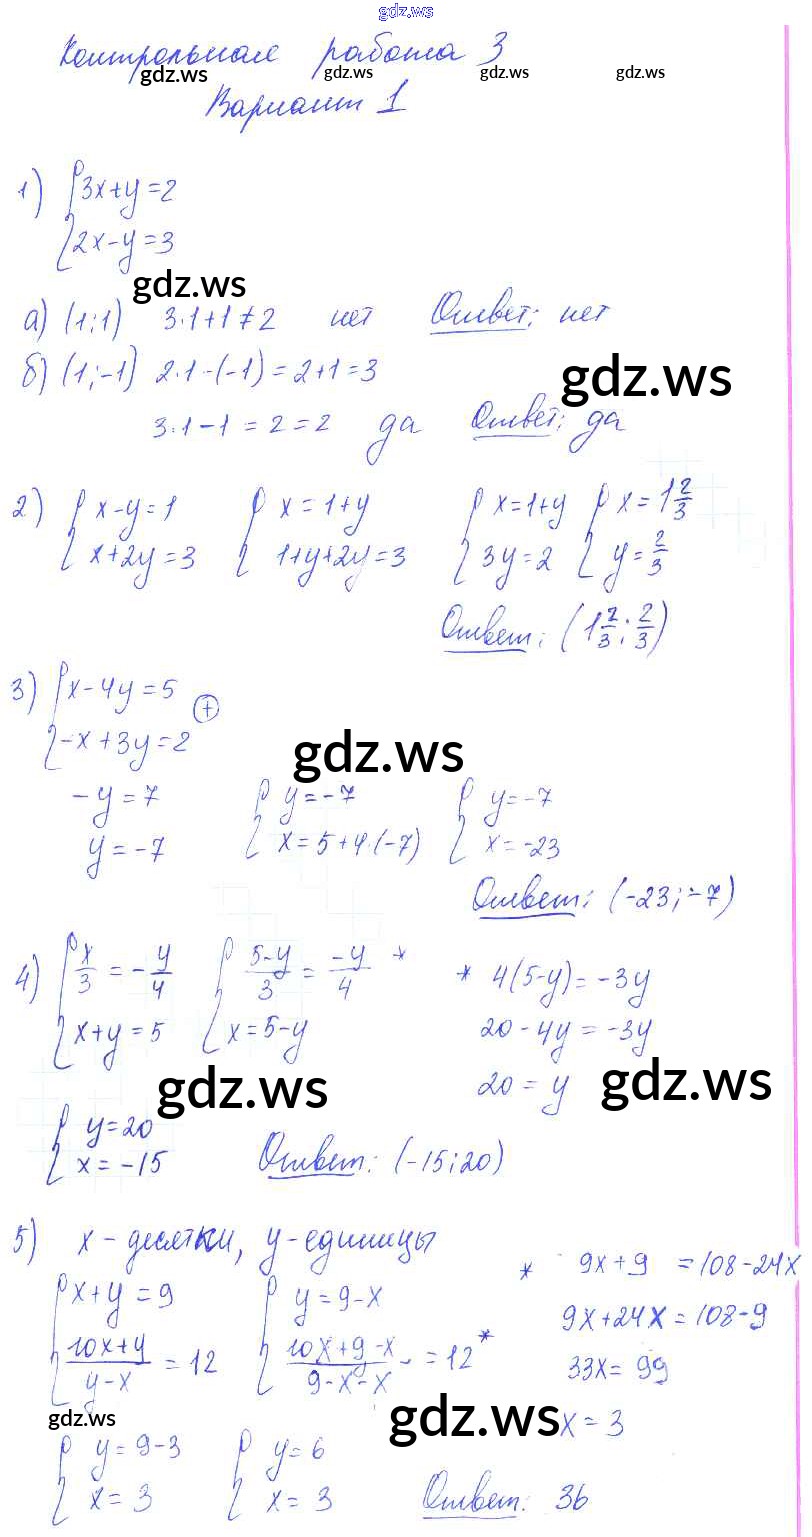 gdz.ws
Контрольная работа 3
gdz.ws gdz.ws gdz.ws
Вариант 1
1) { 3x+y=2
2x-y=3
gdz.ws
а) (1;1) 3·1+1≠2 нет Ответ: нет
б) (1;-1) 2·1-(-1)=2+1=3
gdz.ws
3·1-1=2=2 да Ответ: да
2) { x-y=1 { x=1+y { x=1+y { x=1 2/3
x+2y=3 1+y+2y=3 3y=2 y=2/3
Ответ: (1 2/3; 2/3)
3) { x-4y=5 +
-x+3y=2
gdz.ws
-y=7 { y=-7 { y=-7
y=-7 x=5+4·(-7) x=-23
Ответ: (-23;-7)
4) { x/3 = -y/4 { (5-y)/3 = -y/4 * * 4(5-y)=-3y
x+y=5 x=5-y 20-4y=-3y
20=y
gdz.ws gdz.ws
{ y=20
x=-15 Ответ: (-15;20)
5) x-десятки, y-единицы
{ x+y=9 { y=9-x * 9x+9=108-24x
(10x+y)/(y-x) = 12 (10x+9-x)/(9-x-x) = 12 * 9x+24x=108-9
33x=99
gdz.ws gdz.ws x=3
{ y=9-3 { y=6
x=3 x=3 Ответ: 36